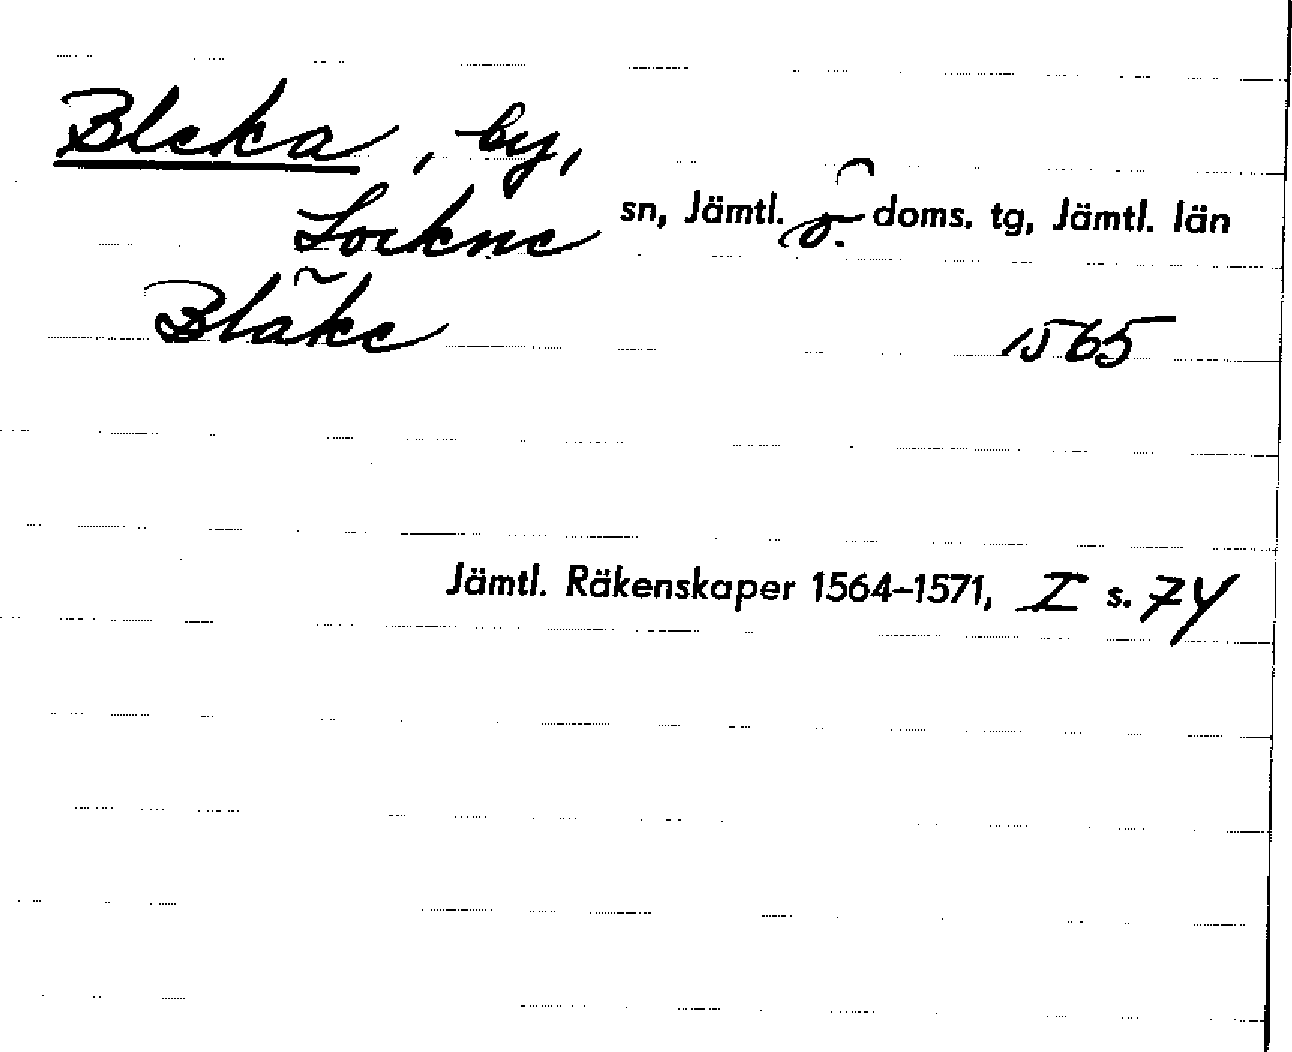 Bleka, by,
Lockne sn, Jämtl. ö. doms. tg, Jämtl. län
Bläke 1565
Jämtl. Räkenskaper 1564–1571, I s. 74